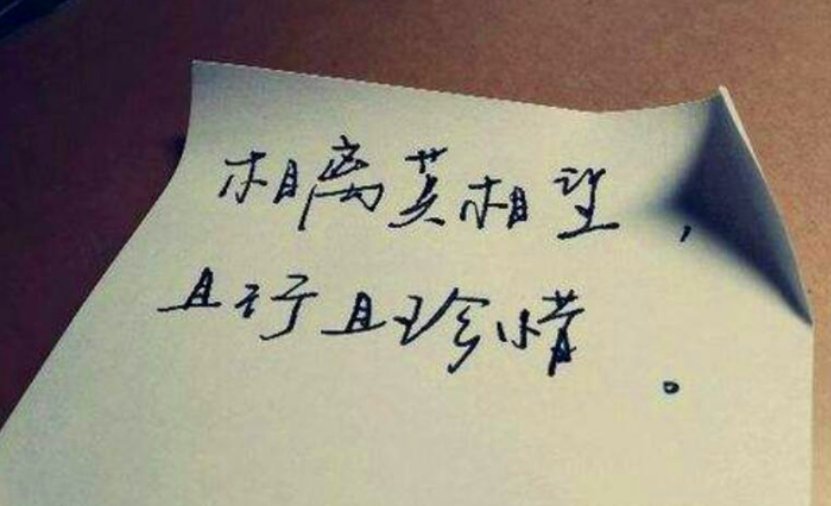 相离莫相望，
且行且珍惜。